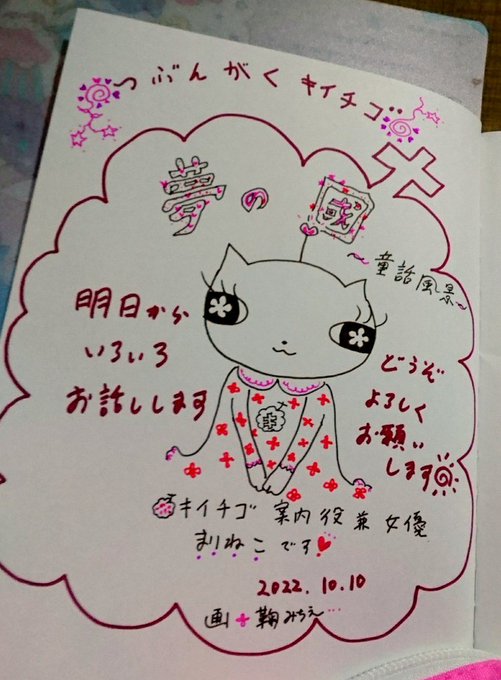 つぶんがく キイチゴ
夢の國
〜童話風景〜
明日から
いろいろ
お話しします
どうぞ
よろしく
お願い
します
キイチゴ 案内役 兼 女優
まりねこです
2022.10.10
画+鞠みちえ